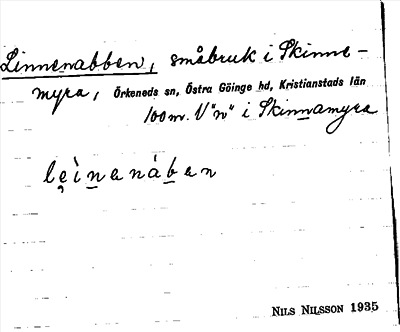 Linnenabben, småbruk i Skinne-
myra, Örkeneds sn, Östra Göinge hd, Kristianstads län
100 m. V "n" i Skinnamyra
leinanaban
NILS NILSSON 1935